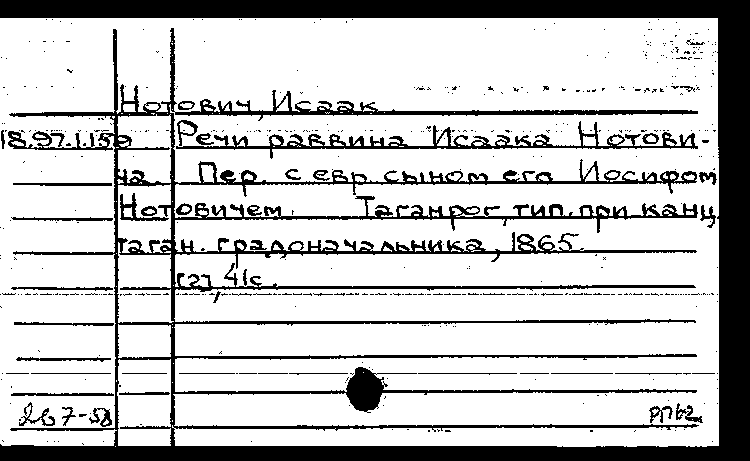 Нотович, Исаак.
18.97.1.159 Речи раввина Исаака Нотови-
ча. Пер. с евр. сыном его Иосифом
Нотовичем. Таганрог, тип. при канц.
таган. градоначальника, 1865.
[2], 41с.
267-58